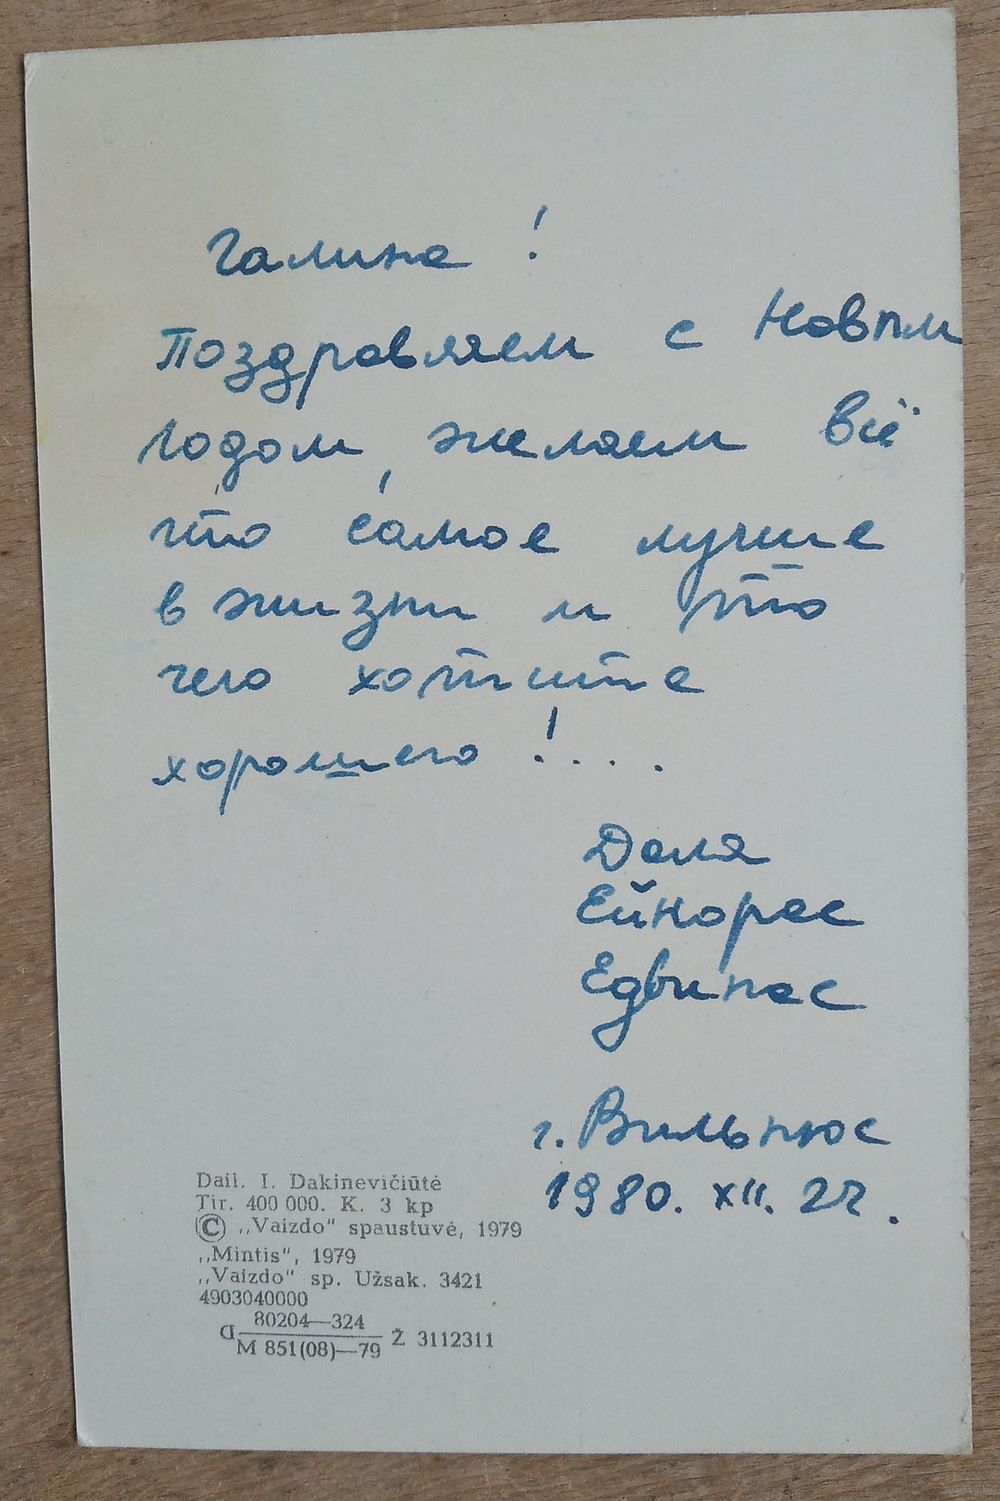 Галина !
Поздравляем с Новым
годом, желаем всё
что самое лучше
в жизни и что
чего хотите
хорошего !....
Даля
Ейнорас
Едвинас
г. Вильнюс
1980. XII. 22.
Dail. I. Dakinevičiūtė
Tir. 400 000. K. 3 kp
© „Vaizdo“ spaustuvė, 1979
„Mintis“, 1979
„Vaizdo“ sp. Užsak. 3421
4903040000
D 80204—324
M 851(08)—79 Ž 3112311